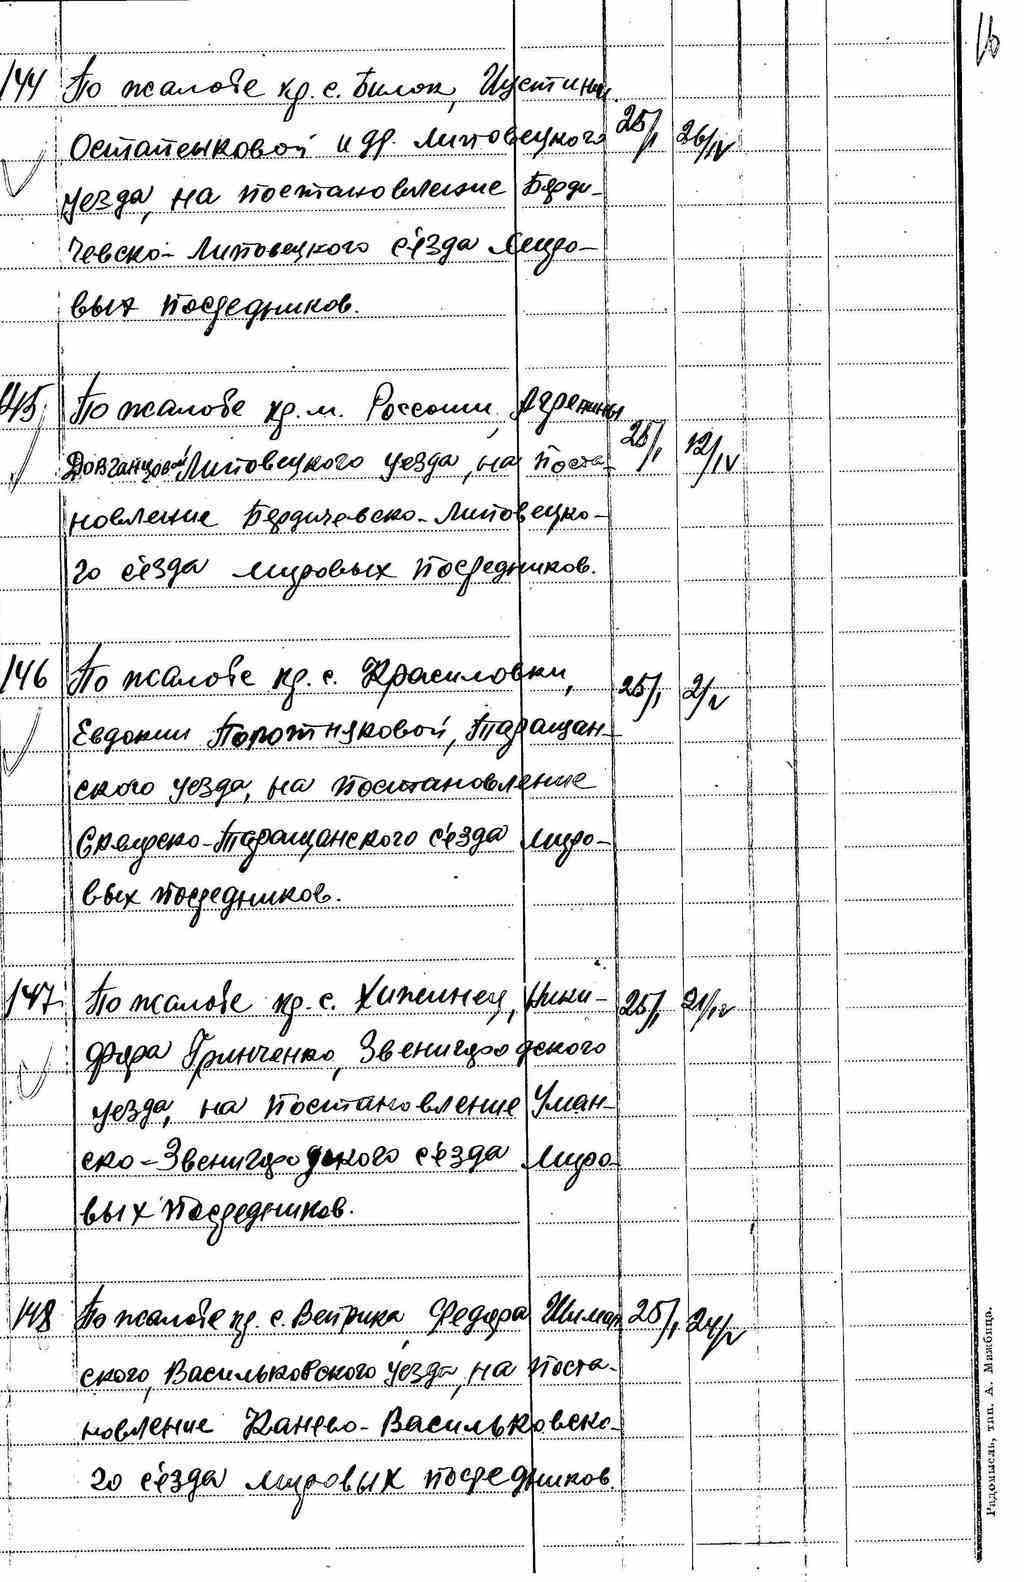 16
144 По жалобе кр. с. Билок, Иустины
Остапенковой и др. Липовецкого 25/I 26/IV
уезда, на постановление Берди-
чевско-Липовецкого с'езда миро-
вых посредников.
145 По жалобе кр. м. Россоши, Агрепины
Довганцовой Липовецкого уезда, на поста- 25/I 12/IV
новление Бердичевско-Липовецко-
го с'езда мировых посредников.
146 По жалобе кр. с. Красиловки, 25/I 2/V
Евдокии Поротняковой, Таращан-
ского уезда, на постановление
Сквирско-Таращанского с'езда миро-
вых посредников.
147 По жалобе кр. с. Хижинец, Ники- 25/I 21/IV
фора Гринченко, Звенигородского
уезда, на постановление Уман-
ско-Звенигородского с'езда миро-
вых посредников.
148 По жалобе кр. с. Ветрика, Федора Шиман 25/I 24/V
ского, Васильковского уезда, на поста-
новление Канево-Васильковско-
го с'езда мировых посредников.
Радомысль, тип. А. Мижбица.